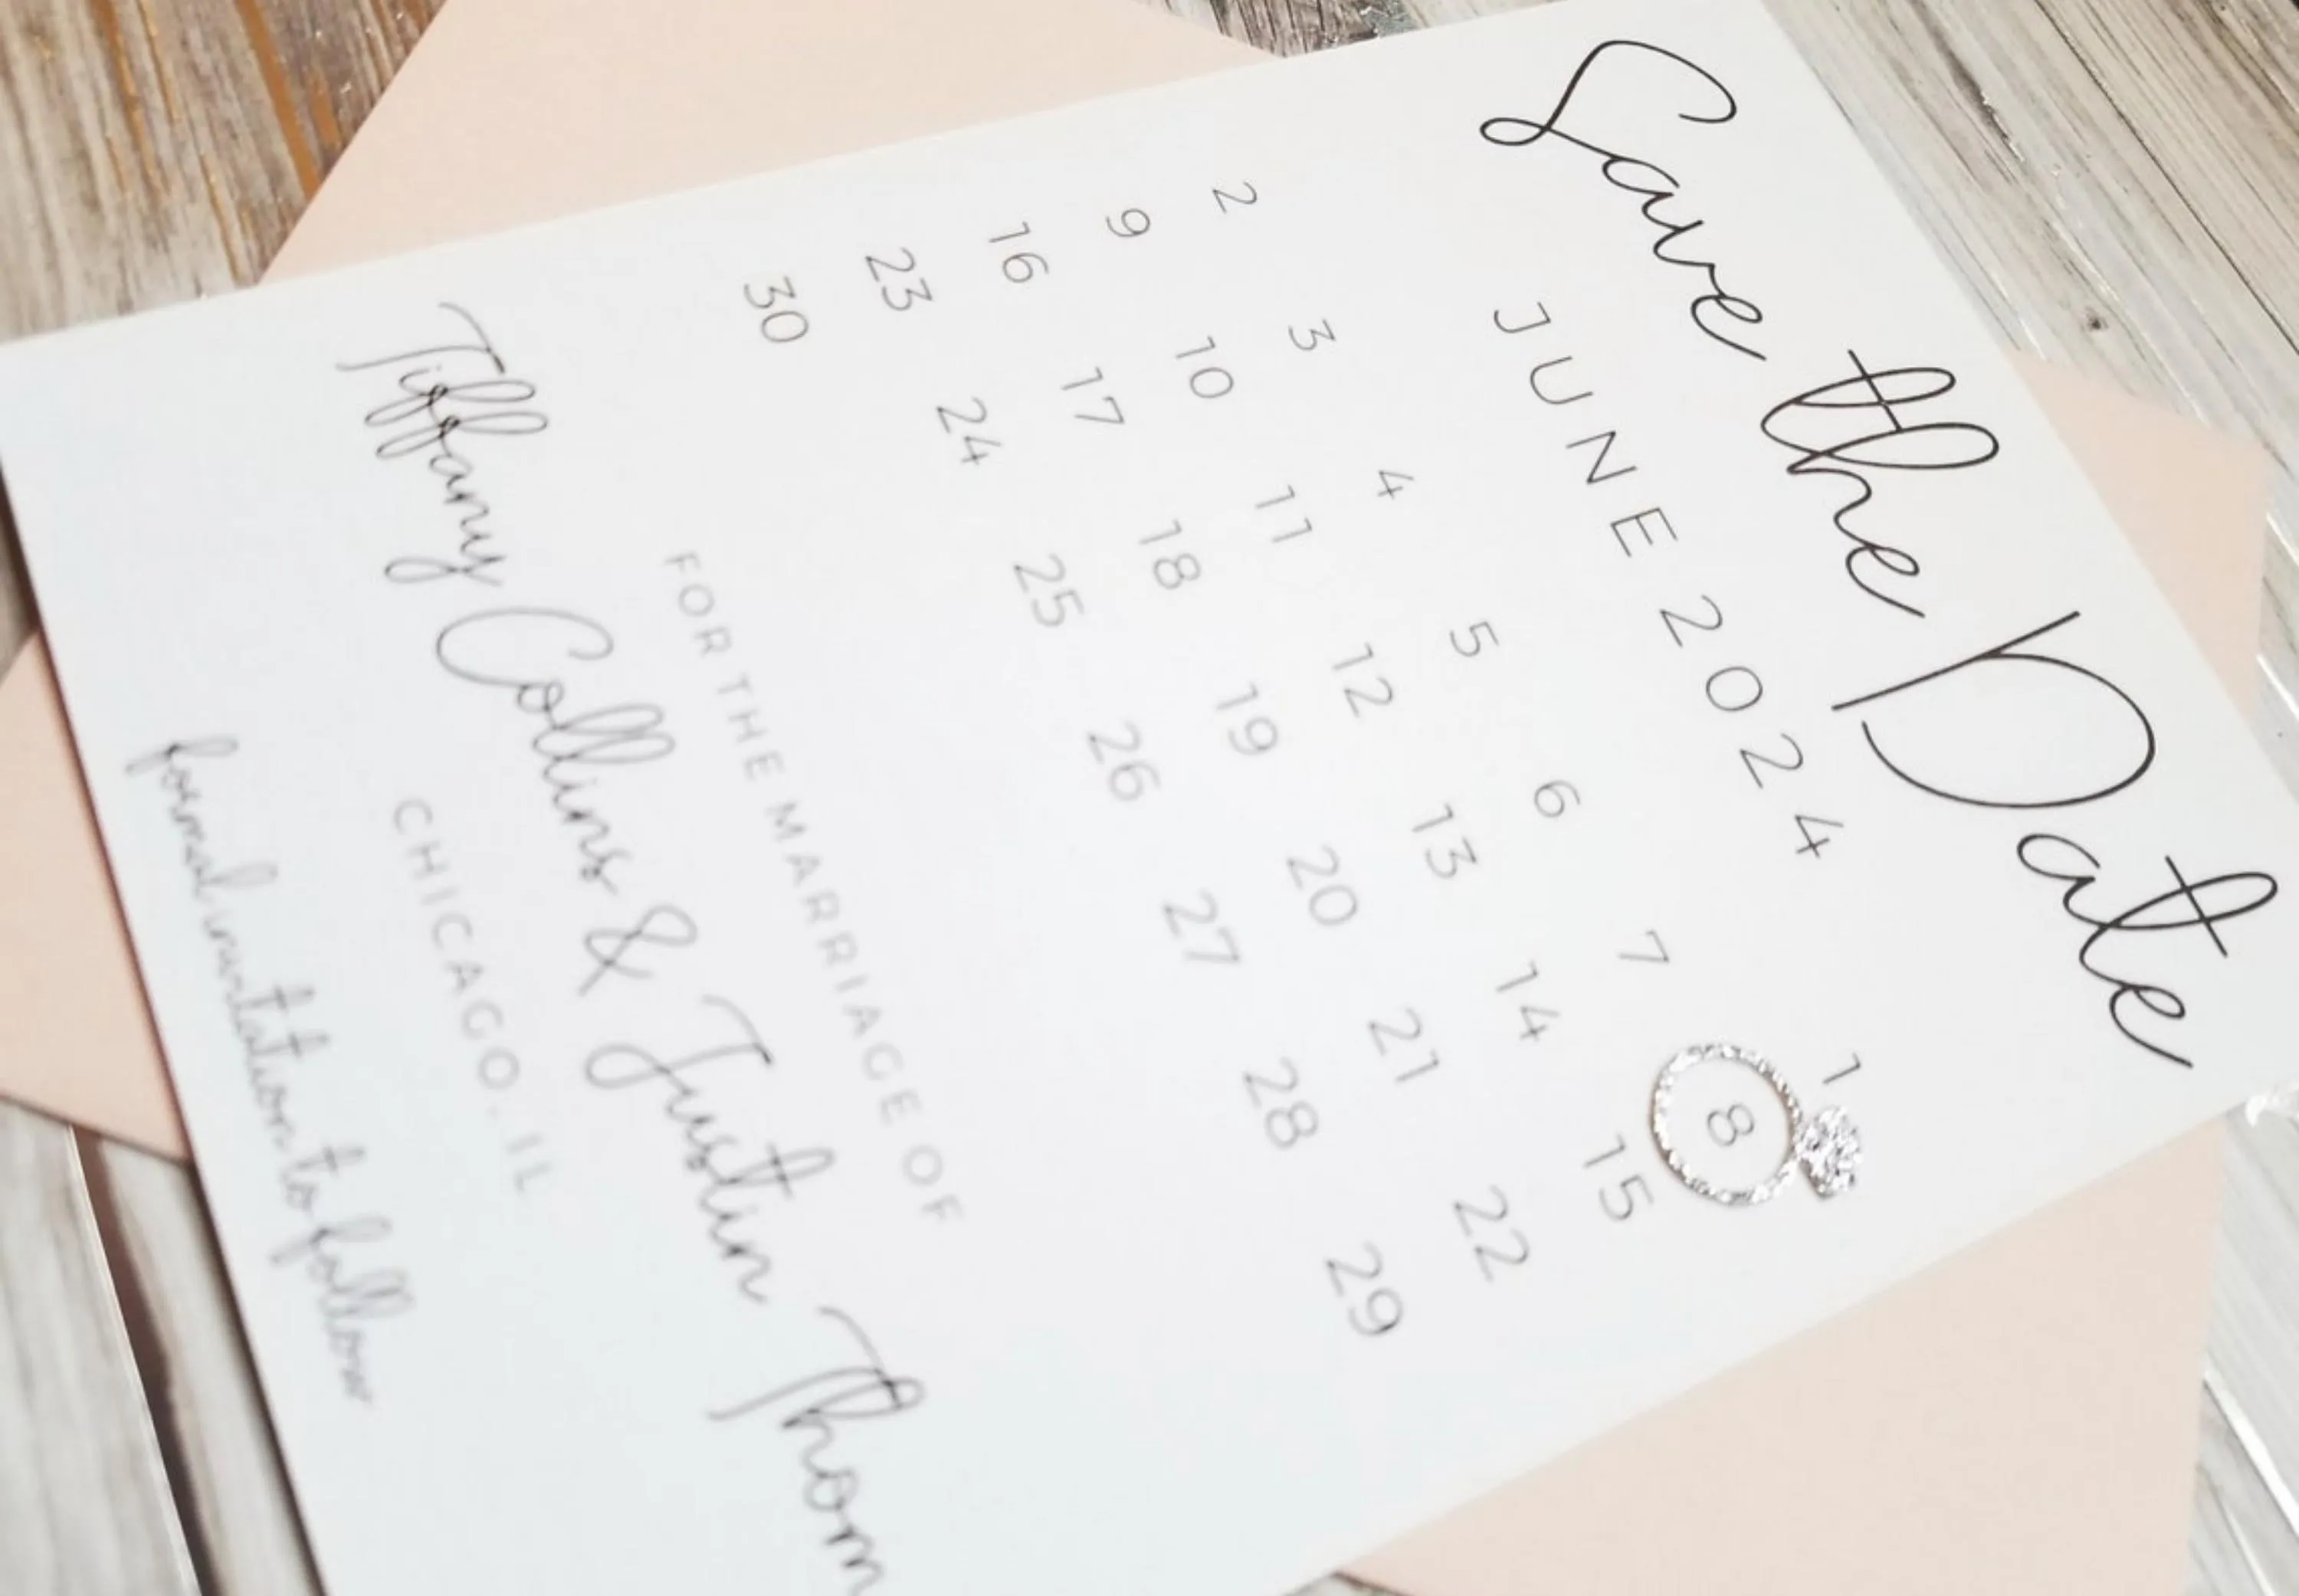 Save the Date
JUNE 2024
1
2 3 4 5 6 7 8
9 10 11 12 13 14 15
16 17 18 19 20 21 22
23 24 25 26 27 28 29
30
FOR THE MARRIAGE OF
Tiffany Collins & Justin Thom
CHICAGO, IL
formal invitation to follow